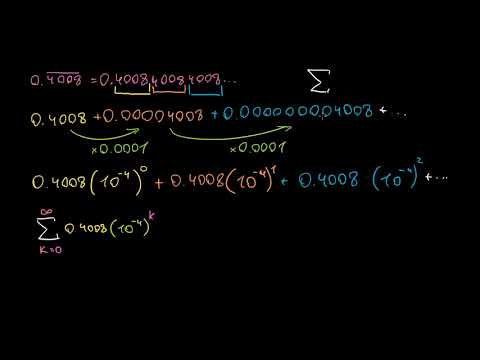 0.4̅0̅0̅8̅ = 0.400840084008... Σ
0.4008 + 0.00004008 + 0.000000004008 + ...
×0.0001 ×0.0001
0.4008(10⁻⁴)⁰ + 0.4008(10⁻⁴)¹ + 0.4008 (10⁻⁴)² + ...
∞
Σ 0.4008(10⁻⁴)ᵏ
K=0